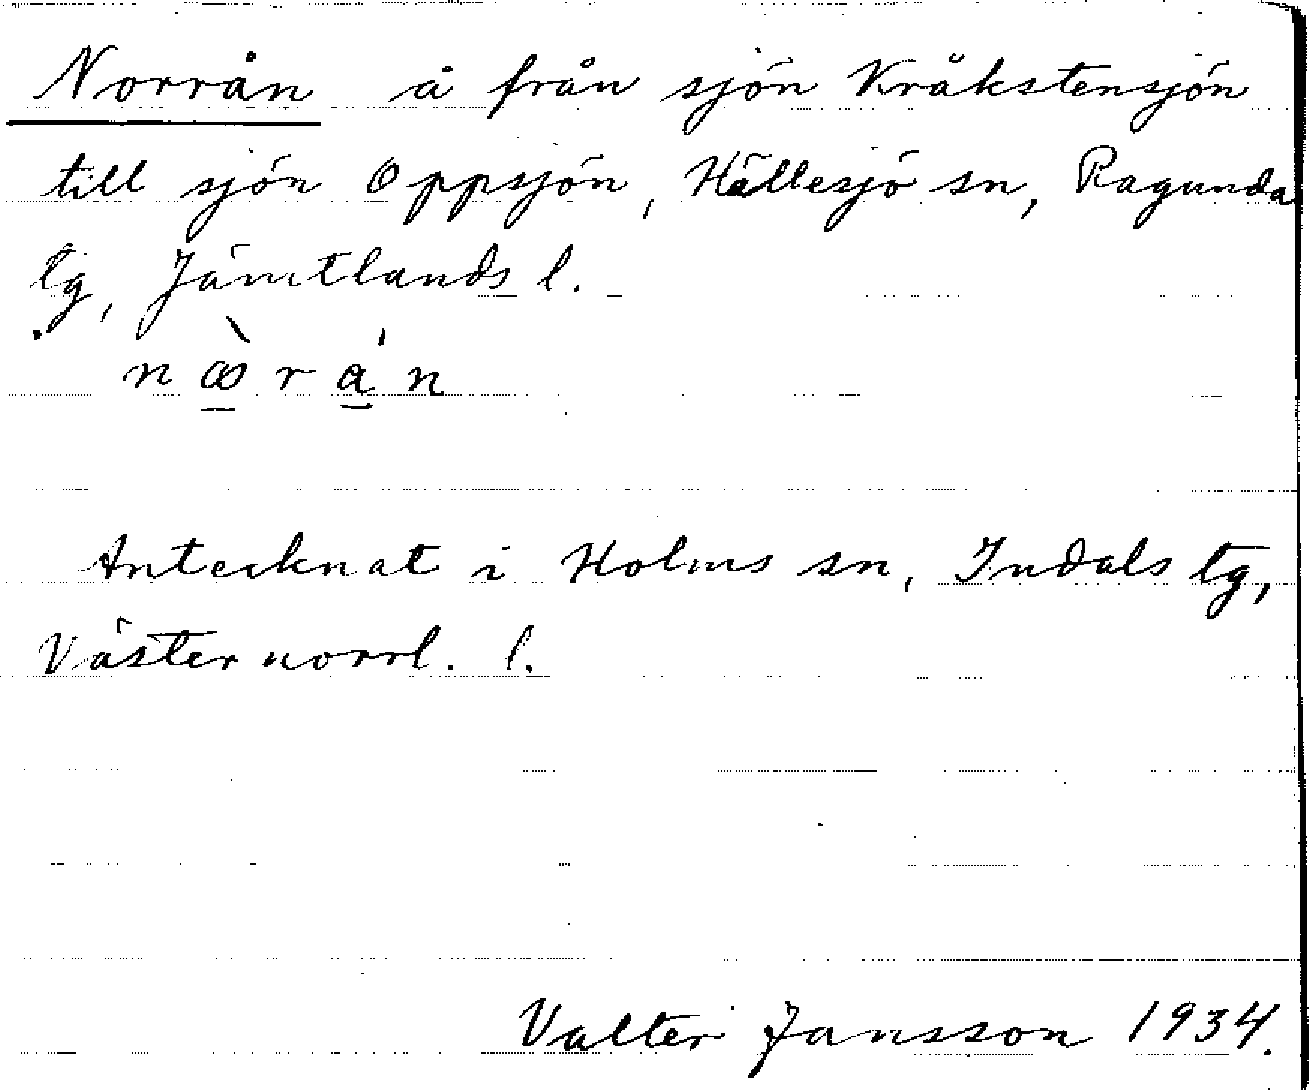 Norrån å från sjön Kråkstensjön
till sjön Oppsjön, Hällesjö sn, Ragunda
tg, Jämtlands l.
Antecknat i Holms sn, Indals tg,
Västernorrl. l.
Valter Jansson 1934.